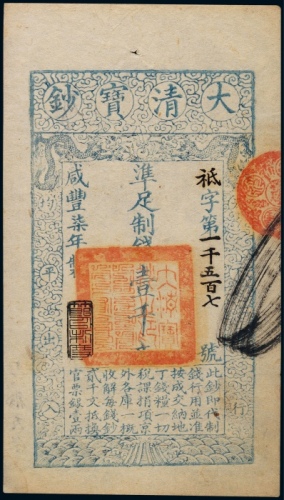 大清寶鈔
祗字第一千五百七號
準足制錢壹千文
咸豐柒年製
行
均平出入
此鈔即代制
錢行用並准
按成交納地
丁錢糧一切
稅課捐項京
外各庫一概
收解每錢鈔
貳千文抵換
官票銀壹兩